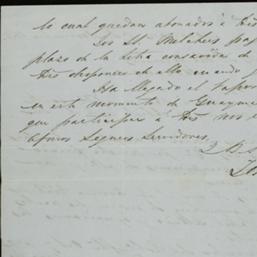 lo cual quedan abonados á
Los SS. Melchers
plazo de la letra consabida de
Uds disponer de ello cuando
Ha llegado el Vapor
en este momento de Guaymas
que participar á Uds nos
afmos Seguros Servidores